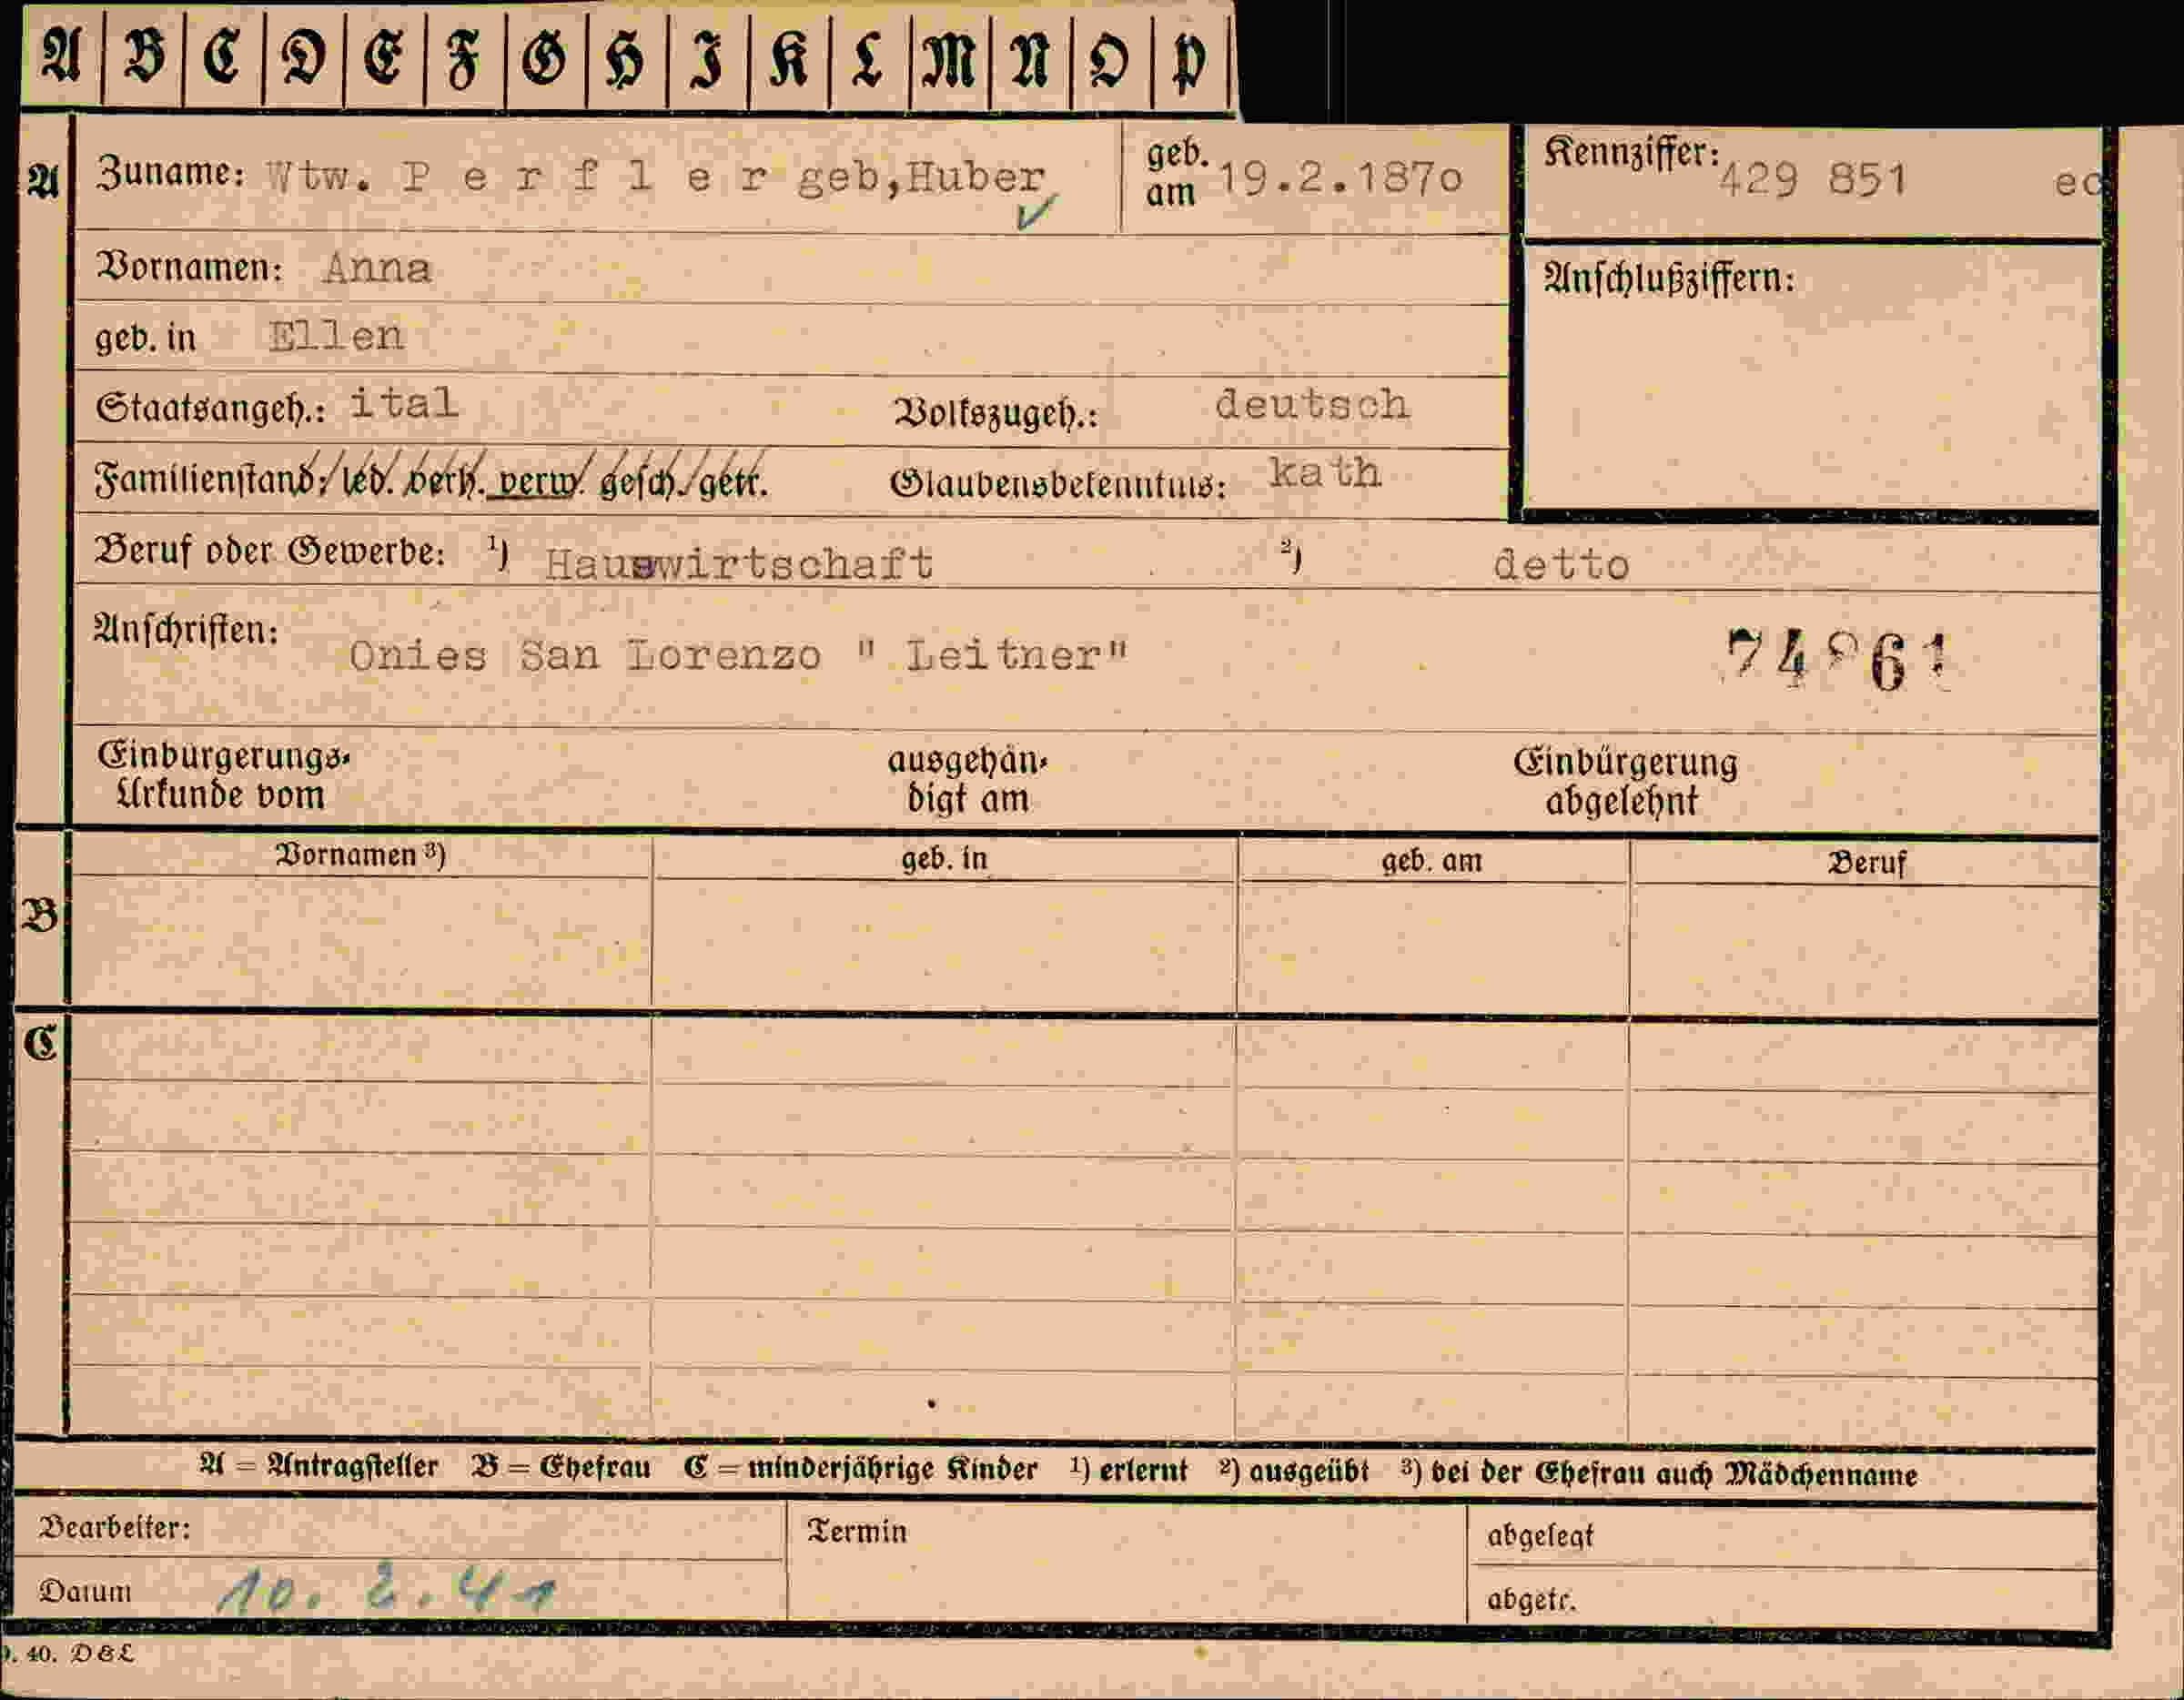 A B C D E F G H I K L M N O P
A Zuname: Wtw. P e r f l e r geb,Huber geb. am 19.2.187o Kennziffer: 429 851 ec
Vornamen: Anna Anschlußziffern:
geb. in Ellen
Staatsangeh.: ital Volkszugeh.: deutsch
Familienstand: led. verh. verw. gesch. getr. Glaubensbekenntnis: kath
Beruf oder Gewerbe: ¹) Hauswirtschaft ²) detto
Anschriften: Onies San Lorenzo " Leitner"
Einbürgerungs- ausgehän- Einbürgerung
Urkunde vom digt am abgelehnt
Vornamen ³) geb. in geb. am Beruf
B
C
A = Antragsteller B = Ehefrau C = minderjährige Kinder ¹) erlernt ²) ausgeübt ³) bei der Ehefrau auch Mädchenname
Bearbeiter: Termin abgelegt
Datum 10. 2. 41 abgetr.
40. D&L